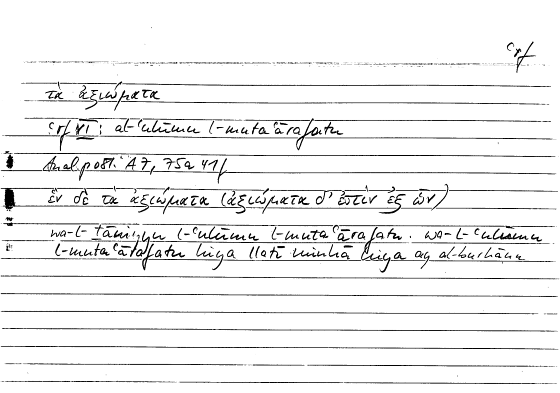 ʿrf
τὰ ἀξιώματα
ʿrf VI: al-ʿulūmu l-mutaʿārafatu
Anal. post. A 7, 75a 41f
ἓν δὲ τὰ ἀξιώματα (ἀξιώματα δ' ἐστὶν ἐξ ὧν)
wa-l- tāniyu l-ʿulūmu l-mutaʿārafatu. wa-l-ʿulūmu
l-mutaʿārafatu hiya llatī minhā hiya ay al-burhānu